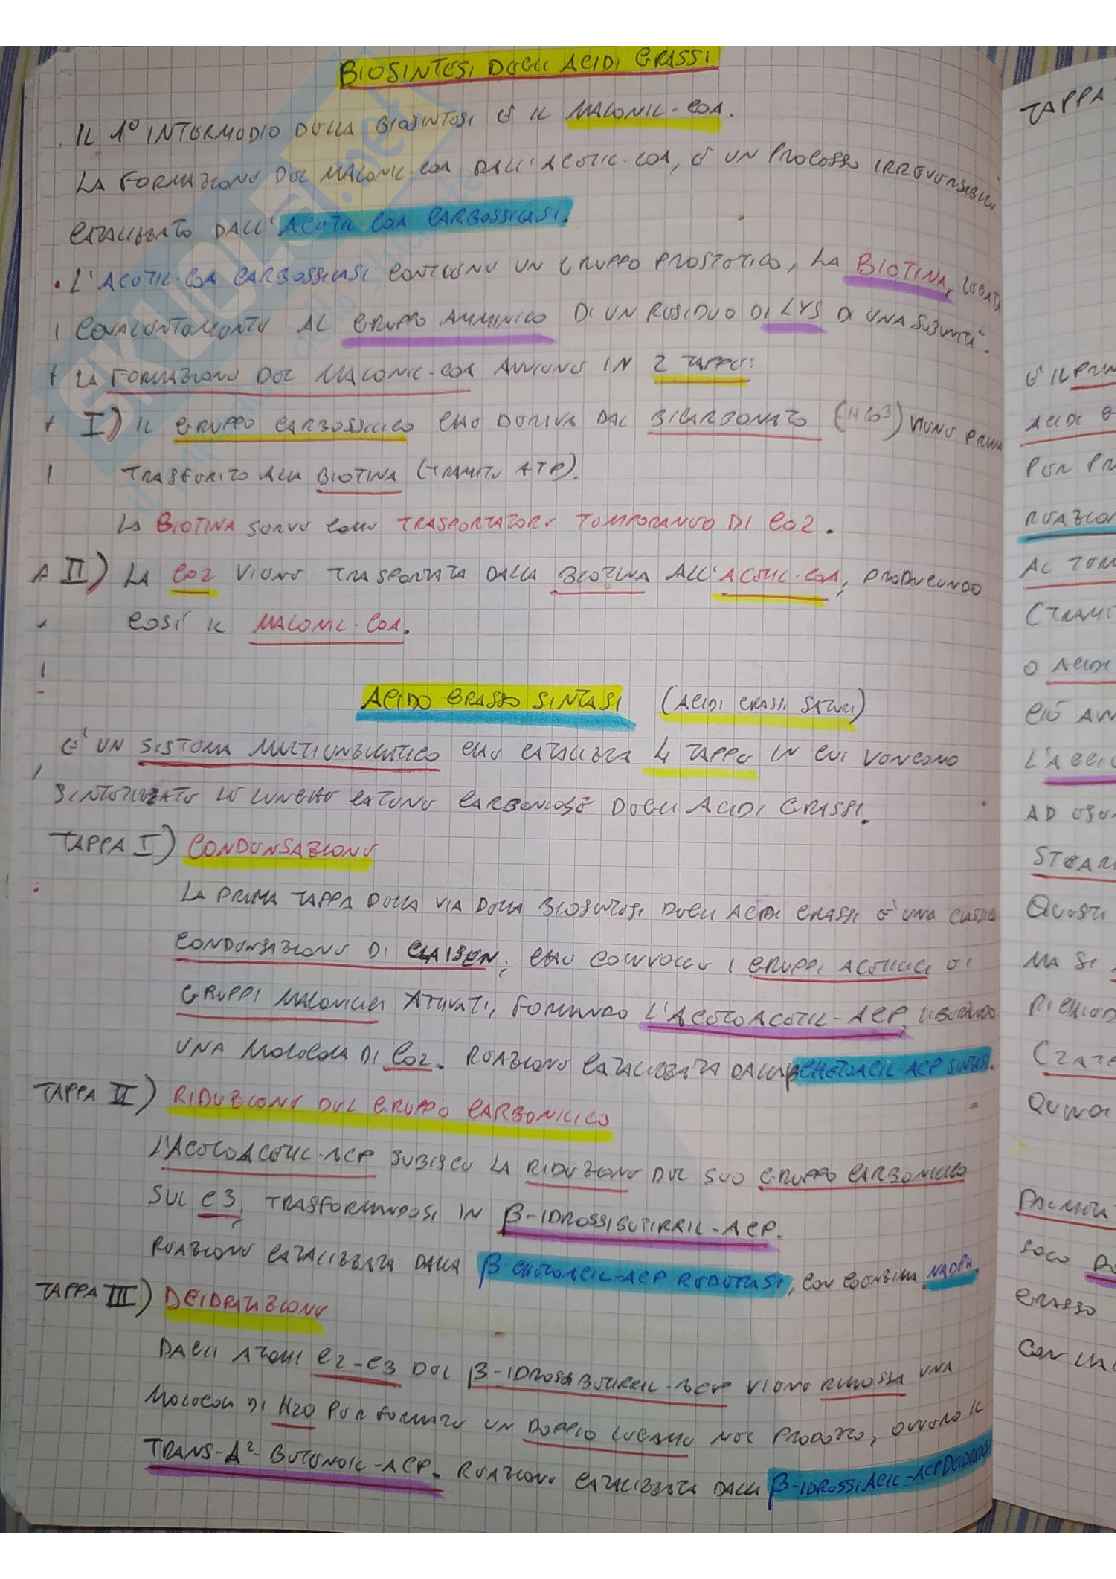 BIOSINTESI DEGLI ACIDI GRASSI
. IL 1° INTERMEDIO DELLA BIOSINTESI È IL MALONIL-COA.
LA FORMAZIONE DEL MALONIL-COA DALL'ACETIL-COA, È UN PROCESSO IRREVERSIBILE
CATALIZZATO DALL'ACETIL COA CARBOSSILASI.
. L'ACETIL-COA CARBOSSILASI CONTIENE UN GRUPPO PROSTETICO, LA BIOTINA, LEGATA
COVALENTEMENTE AL GRUPPO AMMINICO DI UN RESIDUO DI LYS DI UNA SUBUNITÀ.
LA FORMAZIONE DEL MALONIL-COA AVVIENE IN 2 TAPPE:
I) IL GRUPPO CARBOSSILICO CHE DERIVA DAL BICARBONATO (HCO3) VIENE PRIMA
TRASFERITO ALLA BIOTINA (TRAMITE ATP).
LA BIOTINA SERVE COME TRASPORTATORE TEMPORANEO DI CO2.
II) LA CO2 VIENE TRASPORTATA DALLA BIOTINA ALL'ACETIL-COA, PRODUCENDO
COSÌ IL MALONIL-COA.
ACIDO GRASSO SINTASI (ACIDI GRASSI SATURI)
È UN SISTEMA MULTIENZIMATICO CHE CATALIZZA 4 TAPPE IN CUI VENGONO
SINTETIZZATE LE LUNGHE CATENE CARBONIOSE DEGLI ACIDI GRASSI.
TAPPA I) CONDENSAZIONE
LA PRIMA TAPPA DELLA VIA DELLA BIOSINTESI DEGLI ACIDI GRASSI È UNA
CONDENSAZIONE DI CLAISEN, CHE COINVOLGE I GRUPPI ACETILICI DI
GRUPPI MALONILICI ATTIVATI, FORMANDO L'ACETOACETIL-ACP, LIBERANDO
UNA MOLECOLA DI CO2. REAZIONE CATALIZZATA DALLA β CHETOACIL ACP SINTASI.
TAPPA II) RIDUZIONE DEL GRUPPO CARBONILICO
L'ACETOACETIL-ACP SUBISCE LA RIDUZIONE DEL SUO GRUPPO CARBONILICO
SUL C3, TRASFORMANDOSI IN β-IDROSSIBUTIRRIL-ACP.
REAZIONE CATALIZZATA DALLA β CHETOACIL-ACP REDUTTASI, CON COENZIMA NADPH.
TAPPA III) DEIDRATAZIONE
DAGLI ATOMI C2-C3 DEL β-IDROSSIBUTIRRIL-ACP VIENE RIMOSSA UNA
MOLECOLA DI H2O PER FORMARE UN DOPPIO LEGAME NEL PRODOTTO, OVVERO IL
TRANS-Δ²-BUTENOIL-ACP. REAZIONE CATALIZZATA DALLA β-IDROSSIACIL-ACP DEIDRATASI
TAPPA
È IL
ACIDI
AL
O ACIDI
AD
QUESTI
MA SI
QUINDI
SOLO
GRASSO
CON